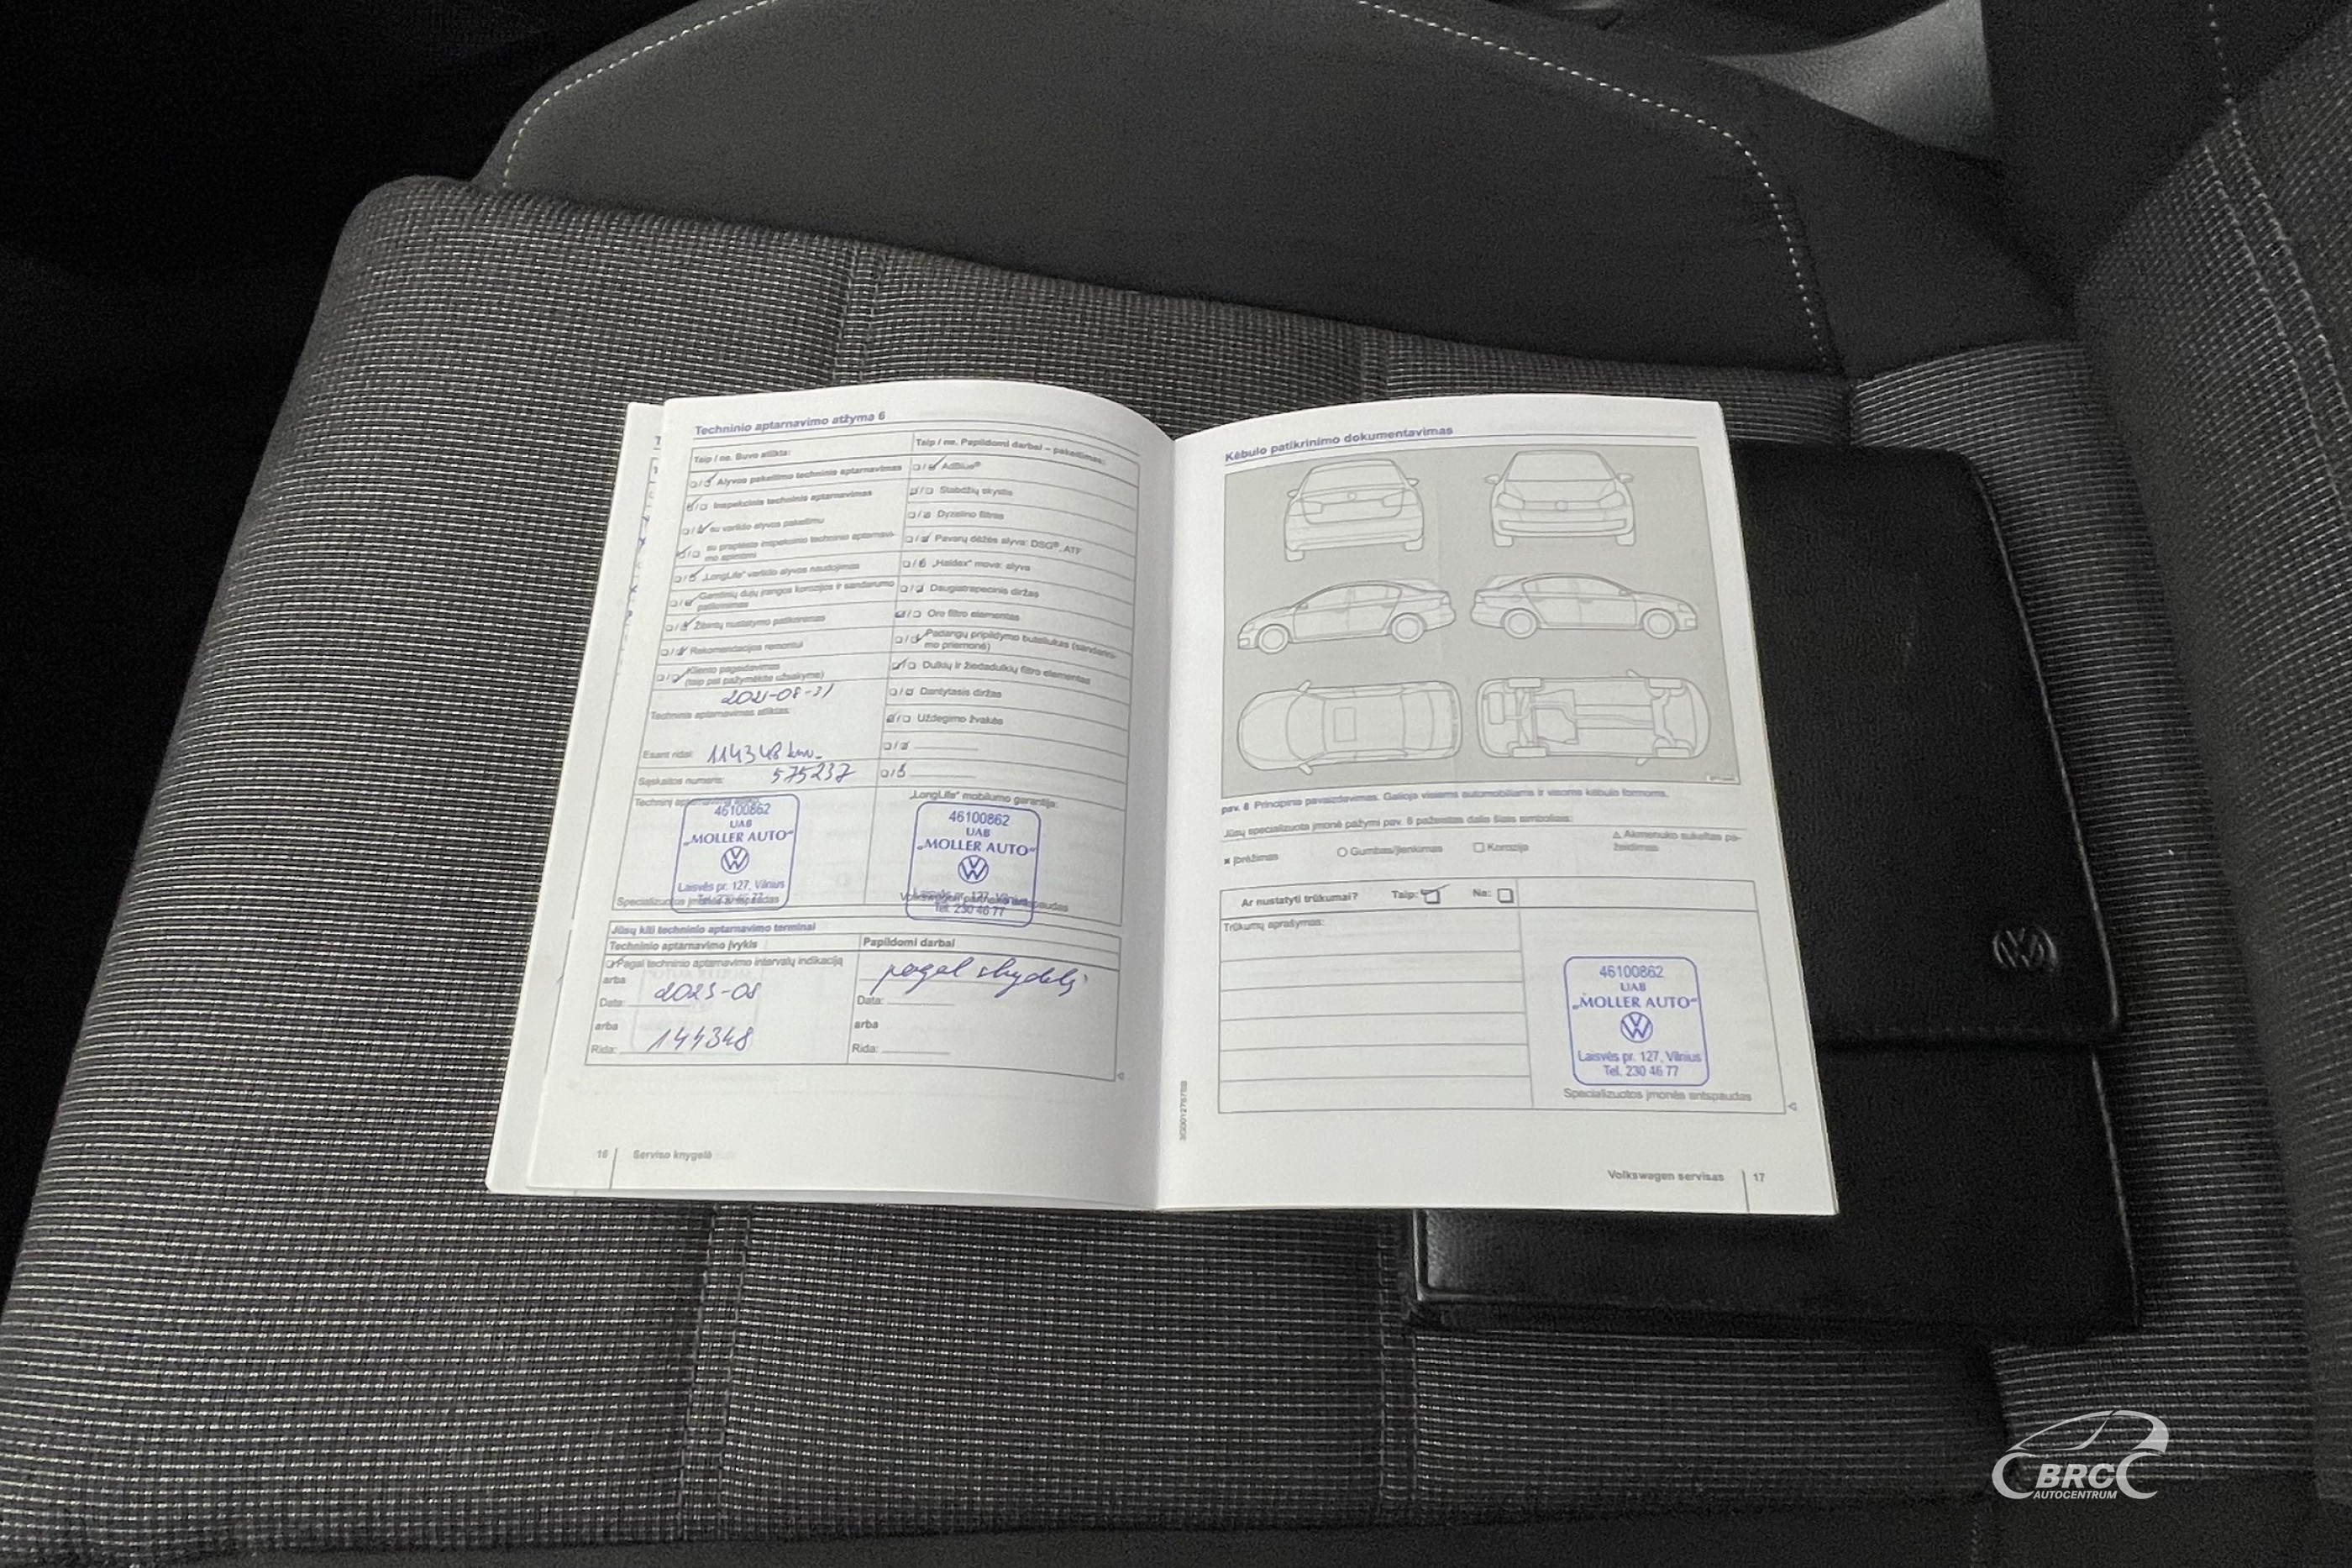 Techninio aptarnavimo atžyma 6
Taip / ne. Buvo atlikta:
Alyvos pakeitimo techninis aptarnavimas
Inspekcinis techninis aptarnavimas
su variklio alyvos pakeitimu
su praplėsta inspekcinio techninio aptarnavi-
mo apimtimi
„LongLife" variklio alyvos naudojimas
Gamtinių dujų įrangos korozijos ir sandarumo
patikrinimas
Žibintų nustatymo patikrinimas
Rekomendacijos remontui
Kliento pageidavimas
(taip pat pažymėkite užsakyme)
2021-08-31
Techninis aptarnavimas atliktas:
Esant ridai: 114348 km.
Sąskaitos numeris: 575237
Taip / ne. Papildomi darbai – pakeitimas:
AdBlue®
Stabdžių skystis
Dyzelino filtras
Pavarų dėžės alyva: DSG®, ATF
„Haldex" mova: alyva
Daugiatrapecinis diržas
Oro filtro elementas
Padangų pripildymo buteliukas (sandarini-
mo priemonė)
Dulkių ir žiedadulkių filtro elementas
Dantytasis diržas
Uždegimo žvakės
46100862
UAB
„MOLLER AUTO"
Laisvės pr. 127, Vilnius
Specializuotos įmonės antspaudas
„LongLife" mobilumo garantija:
46100862
UAB
„MOLLER AUTO"
Laisvės pr. 127, Vilnius
Tel. 230 46 77
Jūsų kiti techninio aptarnavimo terminai
Techninio aptarnavimo įvykis
Papildomi darbai
Pagal techninio aptarnavimo intervalų indikaciją
pagal skydelį
arba
Data: 2023-08
Data:
arba
arba
Rida: 144348
Rida:
16
Serviso knygelė
Kėbulo patikrinimo dokumentavimas
pav. 8 Principinis pavaizdavimas. Galioja visiems automobiliams ir visoms kėbulo formoms.
Jūsų specializuota įmonė pažymi pav. 8 pažeistas dalis šiais simboliais:
Įbrėžimas
Gumbas/įlenkimas
Korozija
Akmenuko sukeltas pa-
žeidimas
Ar nustatyti trūkumai? Taip: Ne:
Trūkumų aprašymas:
46100862
UAB
„MOLLER AUTO"
Laisvės pr. 127, Vilnius
Tel. 230 46 77
Specializuotos įmonės antspaudas
Volkswagen servisas
17
BRC
AUTOCENTRUM